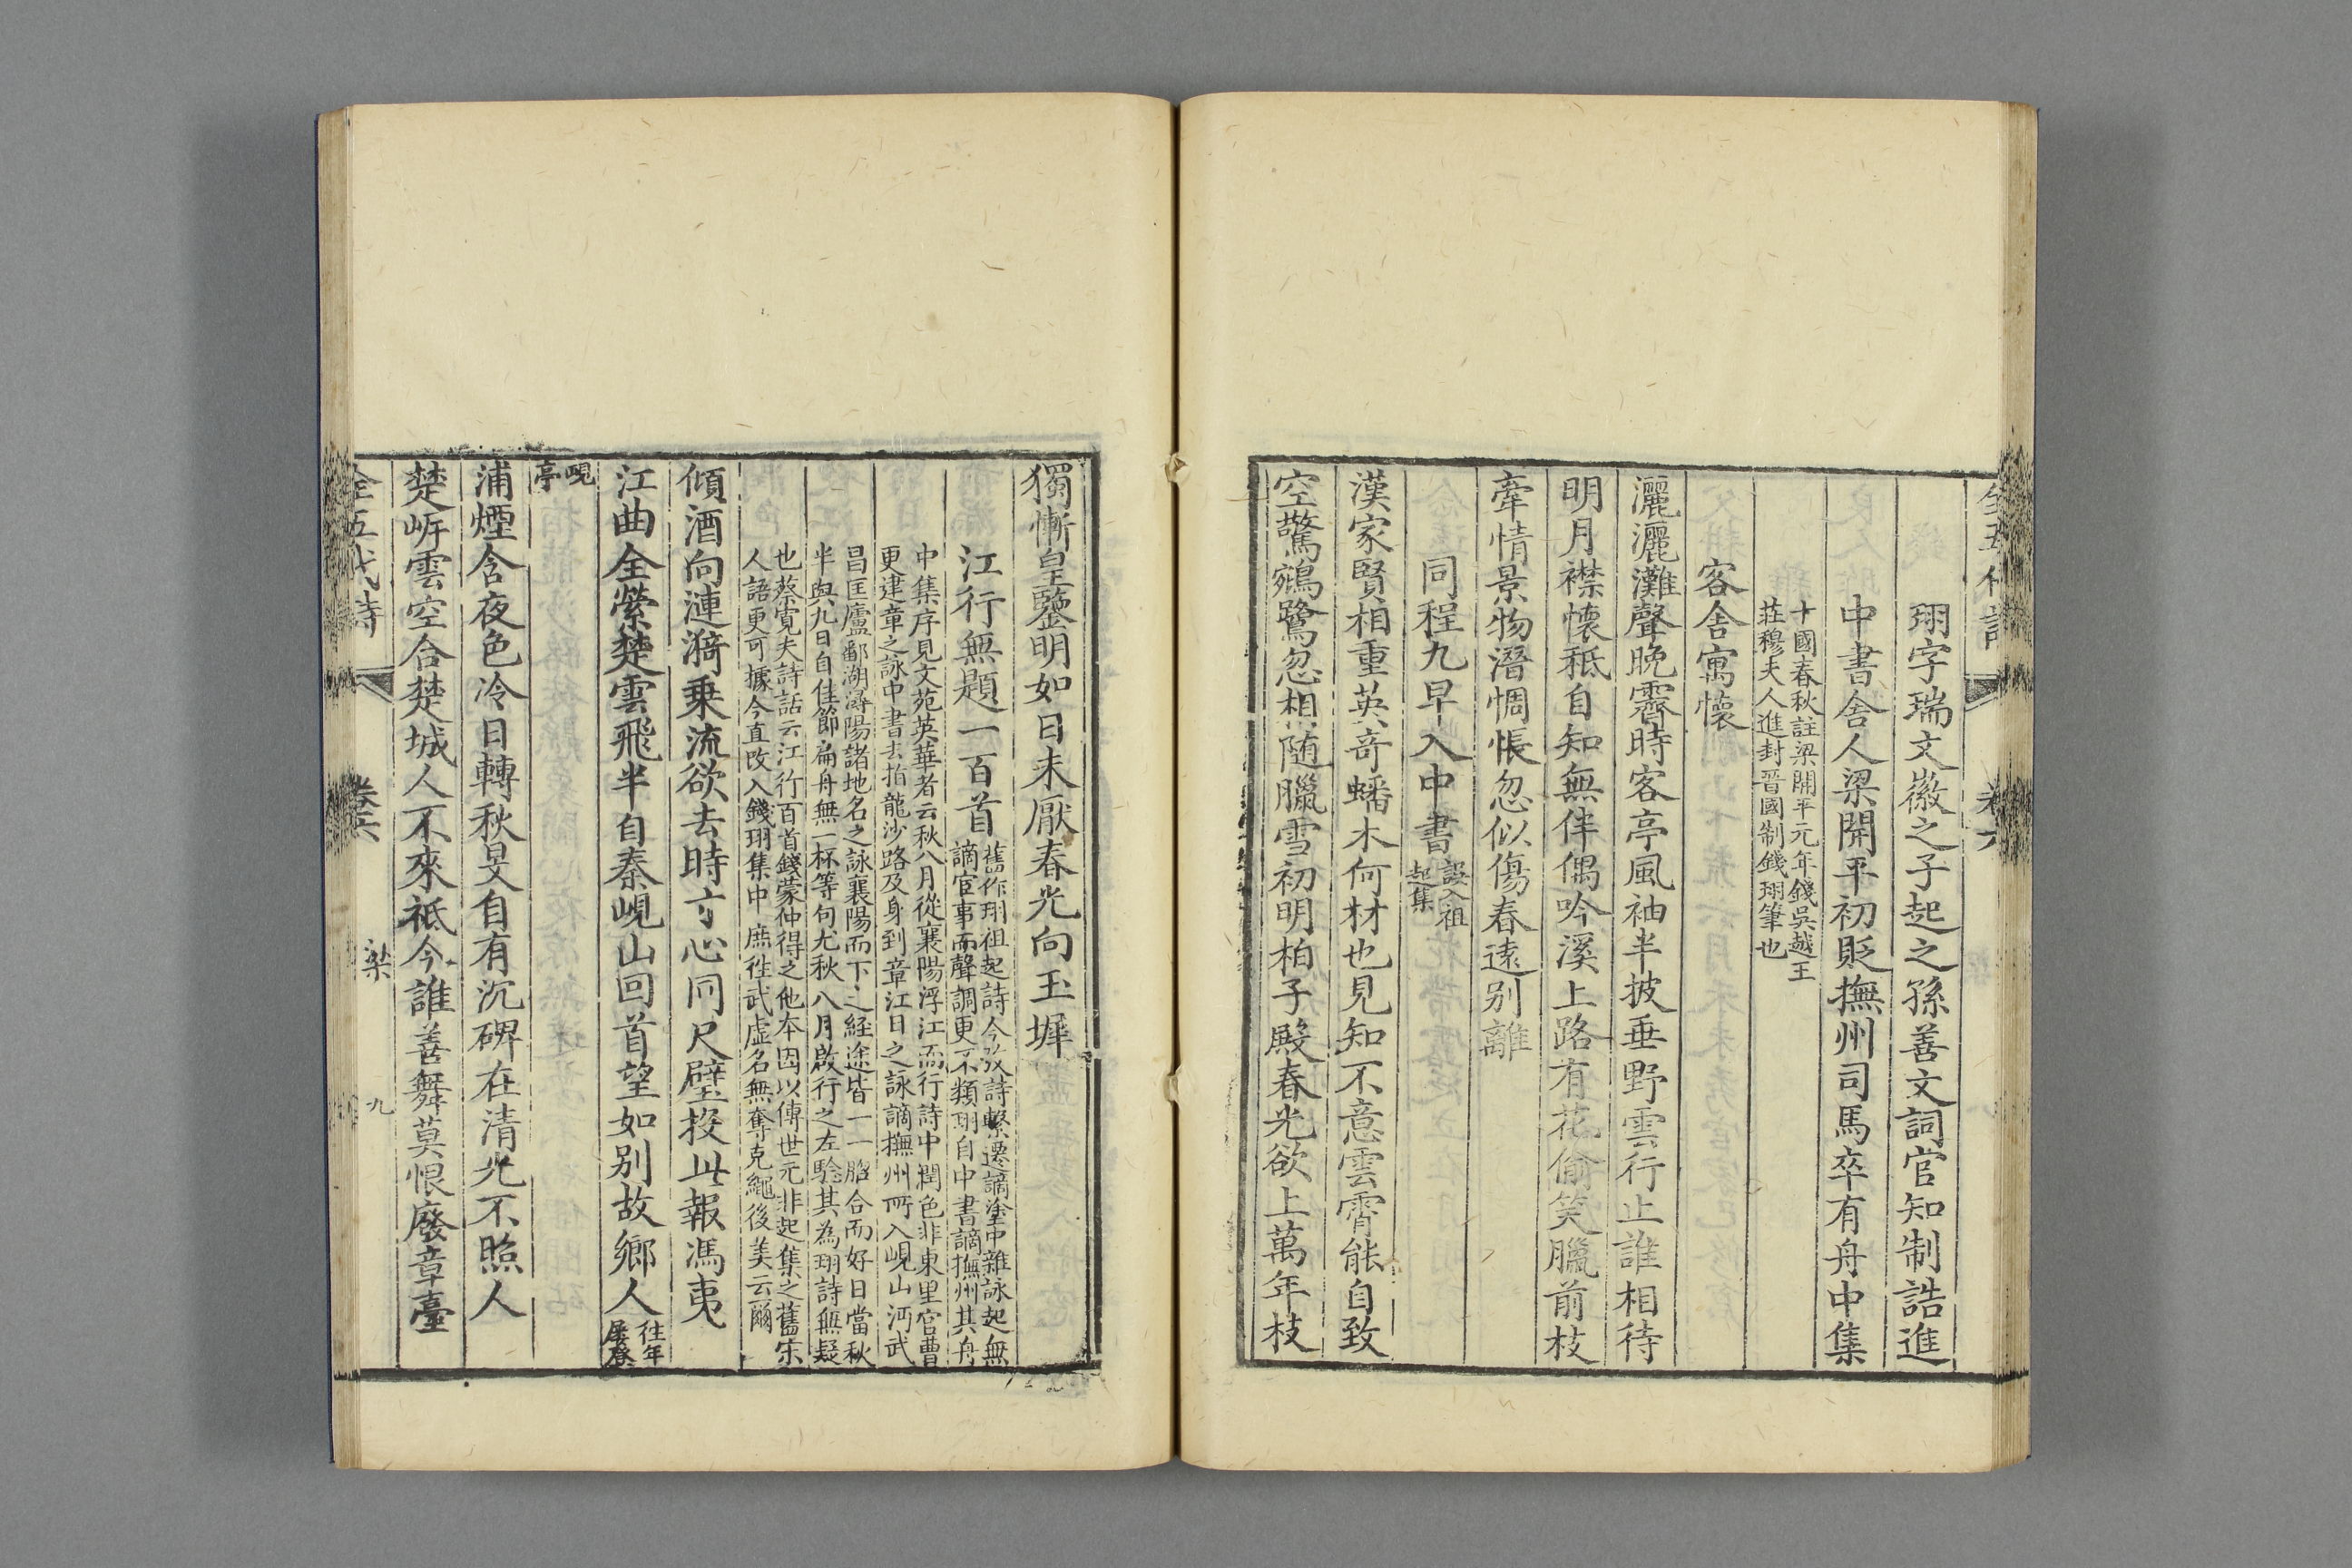 全五代詩 卷六
珝字瑞文徽之子起之孫善文詞官知制誥進
中書舍人梁開平初貶撫州司馬卒有舟中集
十國春秋註梁開平元年錢吳越王
莊穆夫人進封晉國制錢珝筆也
客舍寓懷
灑灑灘聲晚霽時客亭風袖半披垂野雲行止誰相待
明月襟懷秪自知無伴偶吟溪上路有花偷笑臘前枝
牽情景物潛惆悵忽似傷春遠别離
同程九早入中書
誤入祖
起集
漢家賢相重英奇蟠木何材也見知不意雲霄能自致
空驚鵷鷺忽相隨臘雪初明柏子殿春光欲上萬年枝
獨慚皇鑒明如日未厭春光向玉墀
江行無題一百首
舊作珝祖起詩今攷詩繫遷謫塗中雜詠起無
謫宦事而聲調更不類珝自中書謫撫州其舟
中集序見文苑英華者云秋八月從襄陽浮江而行詩中潤色非東里官曹
更建章之詠中書去指龍沙路及身到章江日之詠謫撫州所入峴山沔武
昌匡廬鄱湖潯陽諸地名之詠襄陽而下之経途皆一一脗合而好日當秋
半與九日自佳節扁舟無一杯等句尤秋八月啟行之左驗其為珝詩無疑
也蔡寛夫詩話云江行百首錢蒙仲得之他本因以傳世元非起集之舊宋
人語更可據今直改入錢珝集中庶徃武虛名無奪克繩後美云爾
傾酒向漣漪乗流欲去時寸心同尺璧投此報馮夷
江曲全縈楚雲飛半自秦峴山回首望如别故鄉人
往年
屢登
峴
亭
浦煙含夜色冷日轉秋旻自有沉碑在清光不照人
楚岍雲空合楚城人不來衹今誰善舞莫恨廢章臺
全五代詩 卷六 梁 九